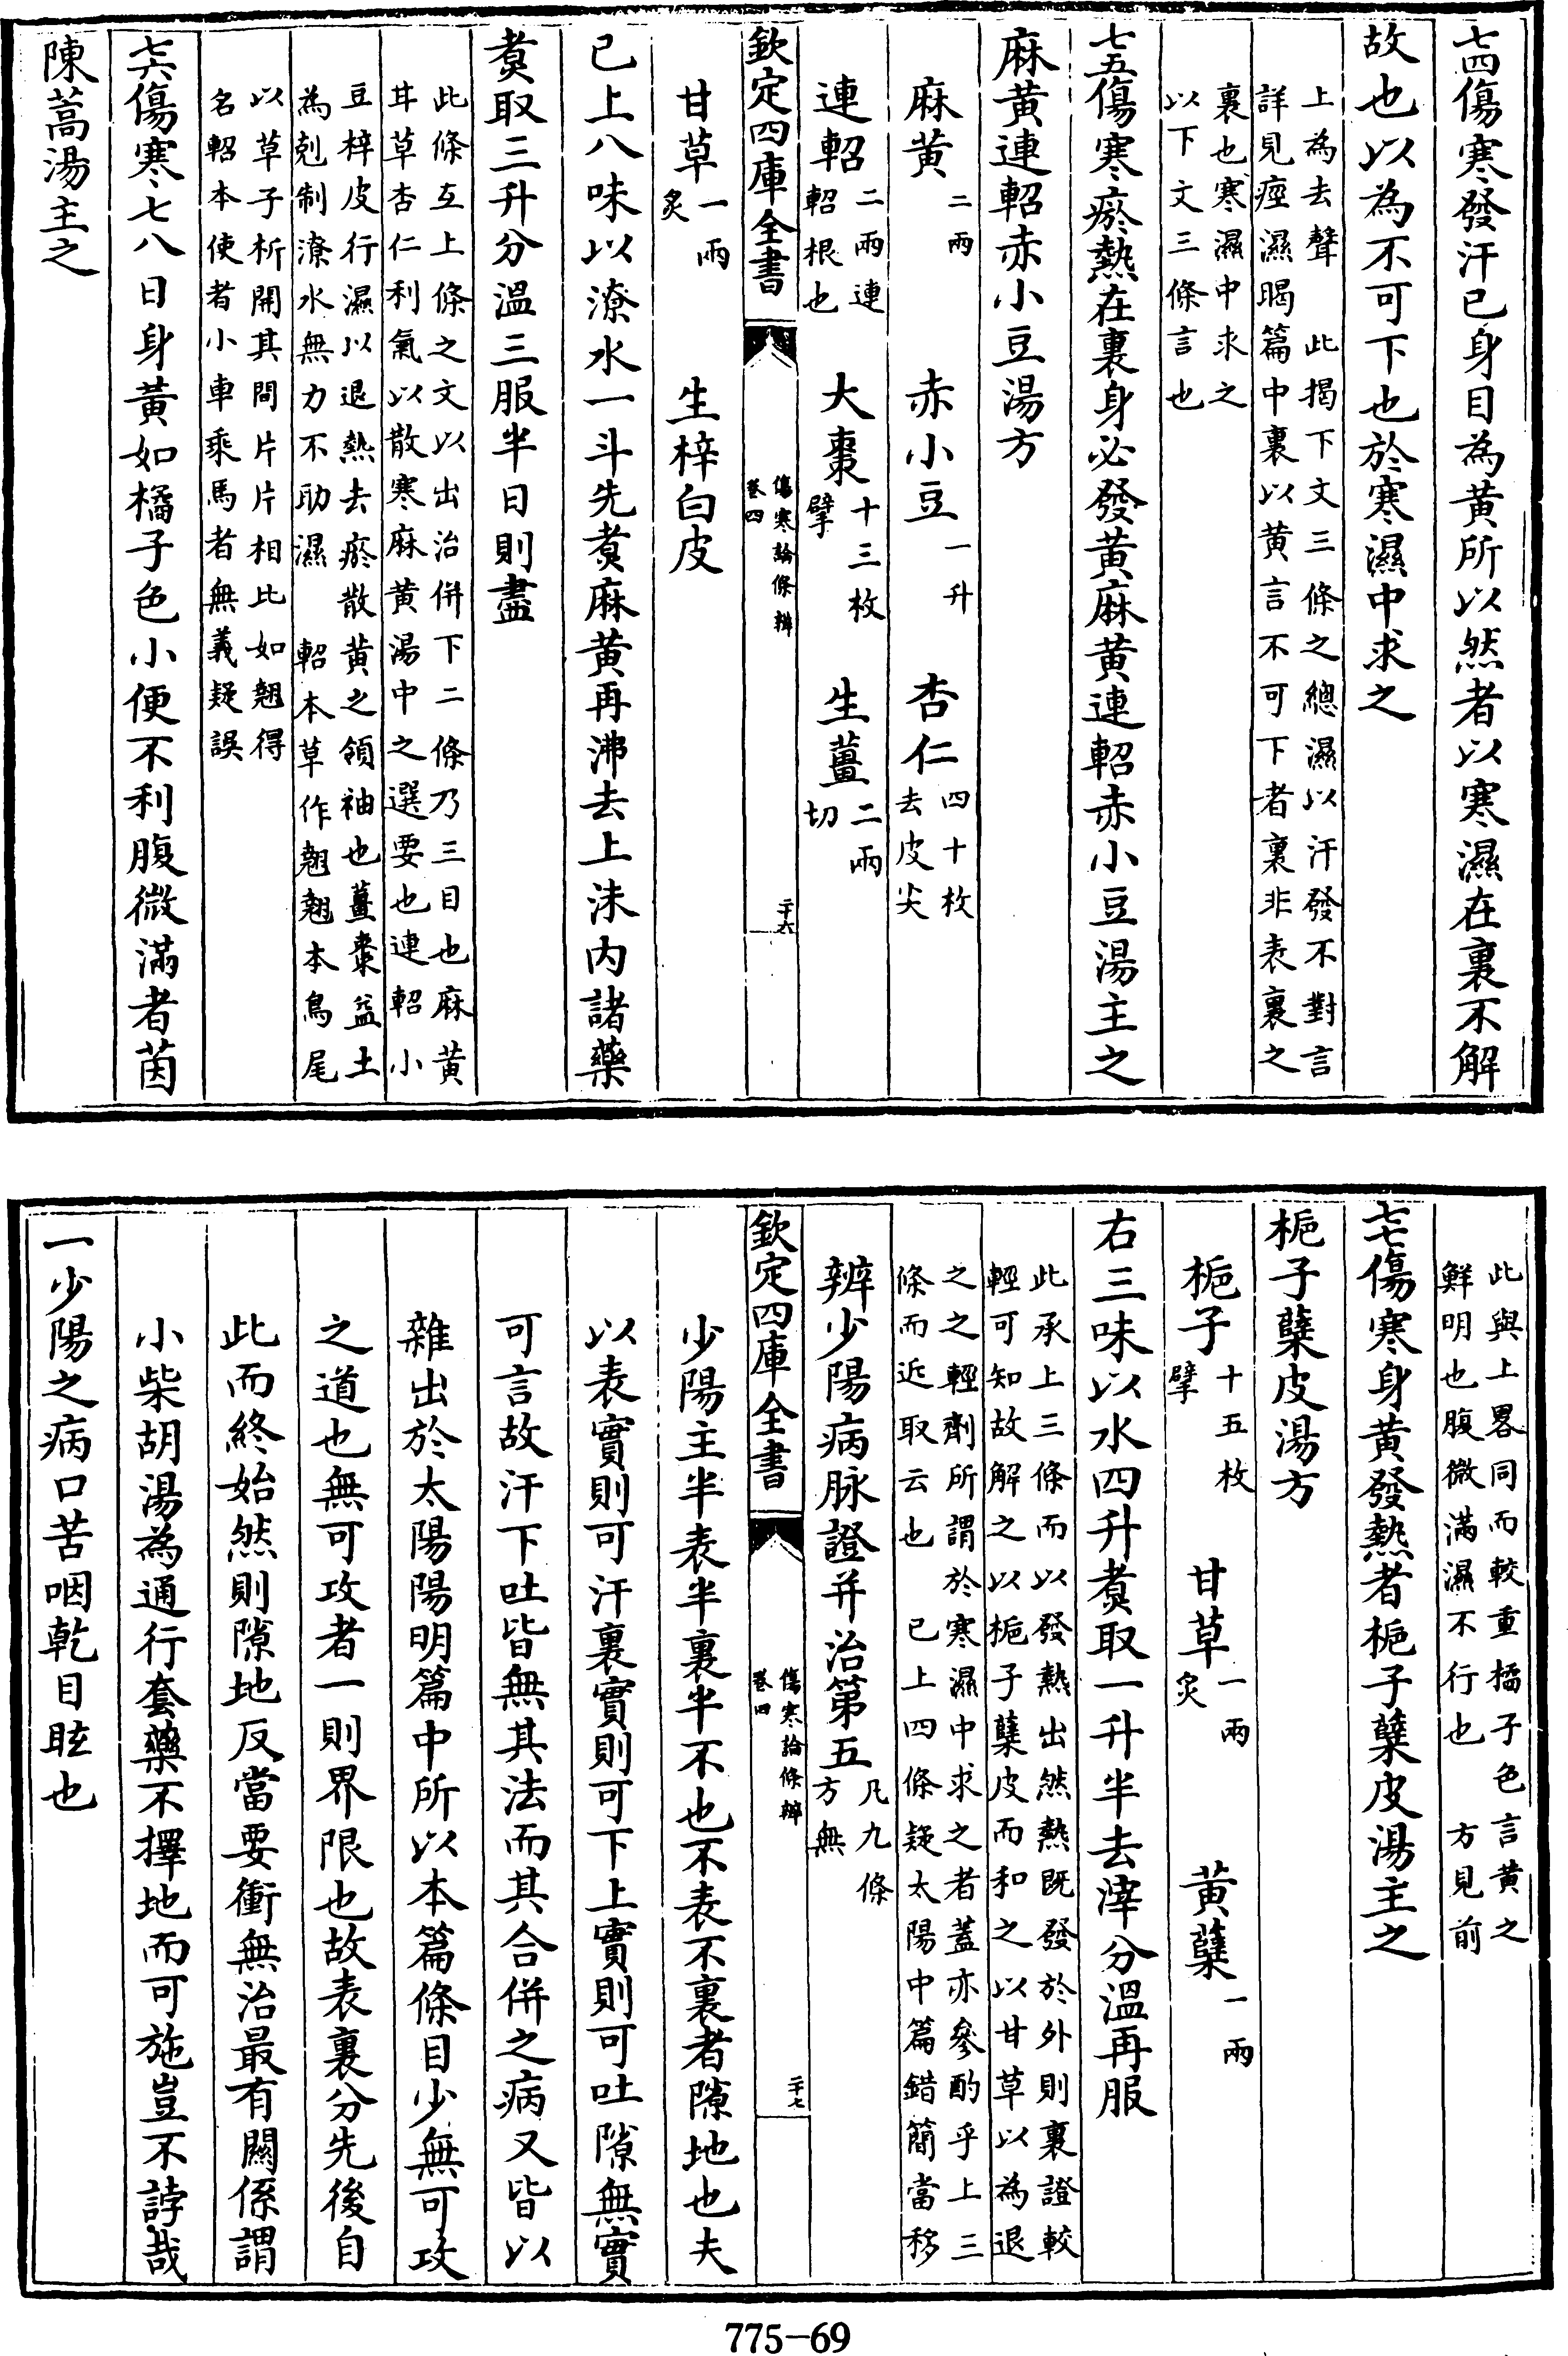 七四傷寒發汗已身目為黄所以然者以寒濕在裏不解
故也以為不可下也於寒濕中求之
上為去聲　此揭下文三條之總濕以汗發不對言
詳見痙濕暍篇中裏以黄言不可下者裏非表裏之
裏也寒濕中求之
以下文三條言也
七五傷寒瘀熱在裏身必發黄麻黄連軺赤小豆湯主之
麻黄連軺赤小豆湯方
麻黄二兩　赤小豆一升　杏仁四十枚去皮尖
連軺二兩連軺根也　大棗十三枚擘　生薑二兩切
欽定四庫全書　傷寒論條辨卷四　二十六
甘草一兩炙　生梓白皮
已上八味以潦水一斗先煑麻黄再沸去上沫内諸藥
煑取三升分溫三服半日則盡
此條互上條之文以出治併下二條乃三目也麻黄
甘草杏仁利氣以散寒麻黄湯中之選要也連軺小
豆梓皮行濕以退熱去瘀散黄之領袖也薑棗益土
為剋制潦水無力不助濕　軺本草作翹翹本鳥尾
以草子析開其間片片相比如翹得
名軺本使者小車乘馬者無義疑誤
七六傷寒七八日身黄如橘子色小便不利腹微滿者茵
陳蒿湯主之
此與上畧同而較重橘子色言黄之
鮮明也腹微滿濕不行也　方見前
七七傷寒身黄發熱者梔子蘗皮湯主之
梔子蘗皮湯方
梔子十五枚擘　甘草一兩炙　黄蘗一兩
右三味以水四升煑取一升半去滓分溫再服
此承上三條而以發熱出然熱既發於外則裏證較
輕可知故解之以梔子蘗皮而和之以甘草以為退
之之輕劑所謂於寒濕中求之者蓋亦參酌乎上三
條而近取云也　已上四條疑太陽中篇錯簡當移
辨少陽病脉證并治第五凡九條方無
欽定四庫全書　傷寒論條辨卷四　二十七
少陽主半表半裏半不也不表不裏者隙地也夫
以表實則可汗裏實則可下上實則可吐隙無實
可言故汗下吐皆無其法而其合併之病又皆以
雜出於太陽陽明篇中所以本篇條目少無可攻
之道也無可攻者一則界限也故表裏分先後自
此而終始然則隙地反當要衝無治最有關係謂
小柴胡湯為通行套藥不擇地而可施豈不誖哉
一少陽之病口苦咽乾目眩也
775-69